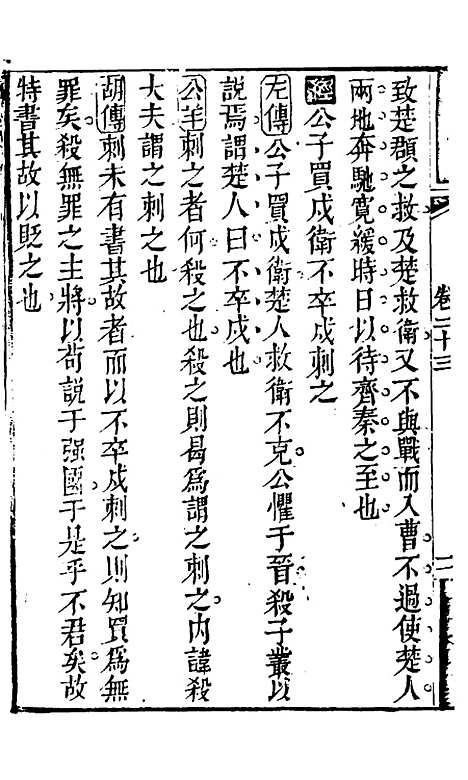 卷二十三
致楚頵之救及楚救衛又不與戰而入曹不過使楚人
兩地奔馳寬緩時日以待齊秦之至也
經公子買戍衛不卒戍刺之
左傳公子買戍衛楚人救衛不克公懼于晉殺子叢以
說焉謂楚人曰不卒戍也
公羊刺之者何殺之也殺之則曷爲謂之刺之内諱殺
大夫謂之刺之也
胡傳刺未有書其故者而以不卒戍刺之則知買爲無
罪矣殺無罪之主將以苟説于强國于是乎不君矣故
特書其故以貶之也